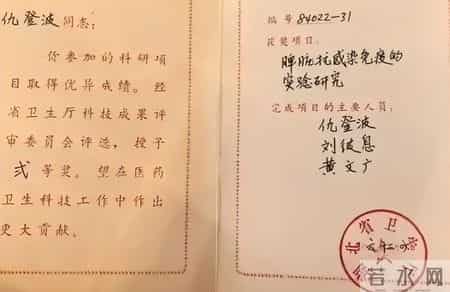 仇登波同志：
你参加的科研项
目取得优异成绩。经
省卫生厅科技成果评
审委员会评选，授予
贰等奖。望在医药
卫生科技工作中作出
更大贡献。
编号84022-31
获奖项目：
脾脏抗感染免疫的
实验研究
完成项目的主要人员：
仇登波
黄文广
若水网